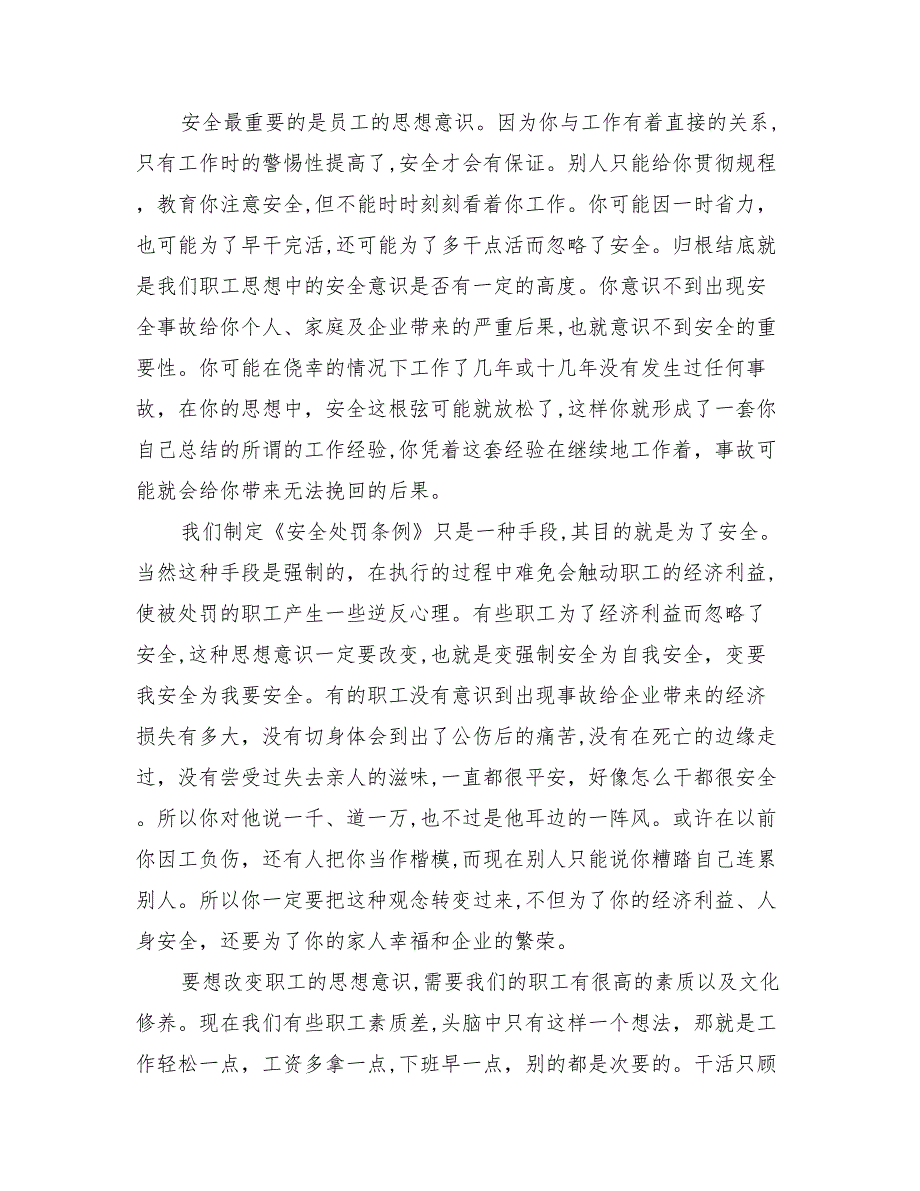 安全最重要的是员工的思想意识。因为你与工作有着直接的关系,
只有工作时的警惕性提高了,安全才会有保证。别人只能给你贯彻规程
，教育你注意安全,但不能时时刻刻看着你工作。你可能因一时省力，
也可能为了早干完活,还可能为了多干点活而忽略了安全。归根结底就
是我们职工思想中的安全意识是否有一定的高度。你意识不到出现安
全事故给你个人、家庭及企业带来的严重后果,也就意识不到安全的重
要性。你可能在侥幸的情况下工作了几年或十几年没有发生过任何事
故，在你的思想中，安全这根弦可能就放松了,这样你就形成了一套你
自己总结的所谓的工作经验,你凭着这套经验在继续地工作着，事故可
能就会给你带来无法挽回的后果。
我们制定《安全处罚条例》只是一种手段,其目的就是为了安全。
当然这种手段是强制的，在执行的过程中难免会触动职工的经济利益,
使被处罚的职工产生一些逆反心理。有些职工为了经济利益而忽略了
安全,这种思想意识一定要改变,也就是变强制安全为自我安全，变要
我安全为我要安全。有的职工没有意识到出现事故给企业带来的经济
损失有多大，没有切身体会到出了公伤后的痛苦,没有在死亡的边缘走
过，没有尝受过失去亲人的滋味,一直都很平安，好像怎么干都很安全
。所以你对他说一千、道一万,也不过是他耳边的一阵风。或许在以前
你因工负伤，还有人把你当作楷模,而现在别人只能说你糟踏自己连累
别人。所以你一定要把这种观念转变过来,不但为了你的经济利益、人
身安全，还要为了你的家人幸福和企业的繁荣。
要想改变职工的思想意识,需要我们的职工有很高的素质以及文化
修养。现在我们有些职工素质差,头脑中只有这样一个想法，那就是工
作轻松一点，工资多拿一点,下班早一点，别的都是次要的。干活只顾